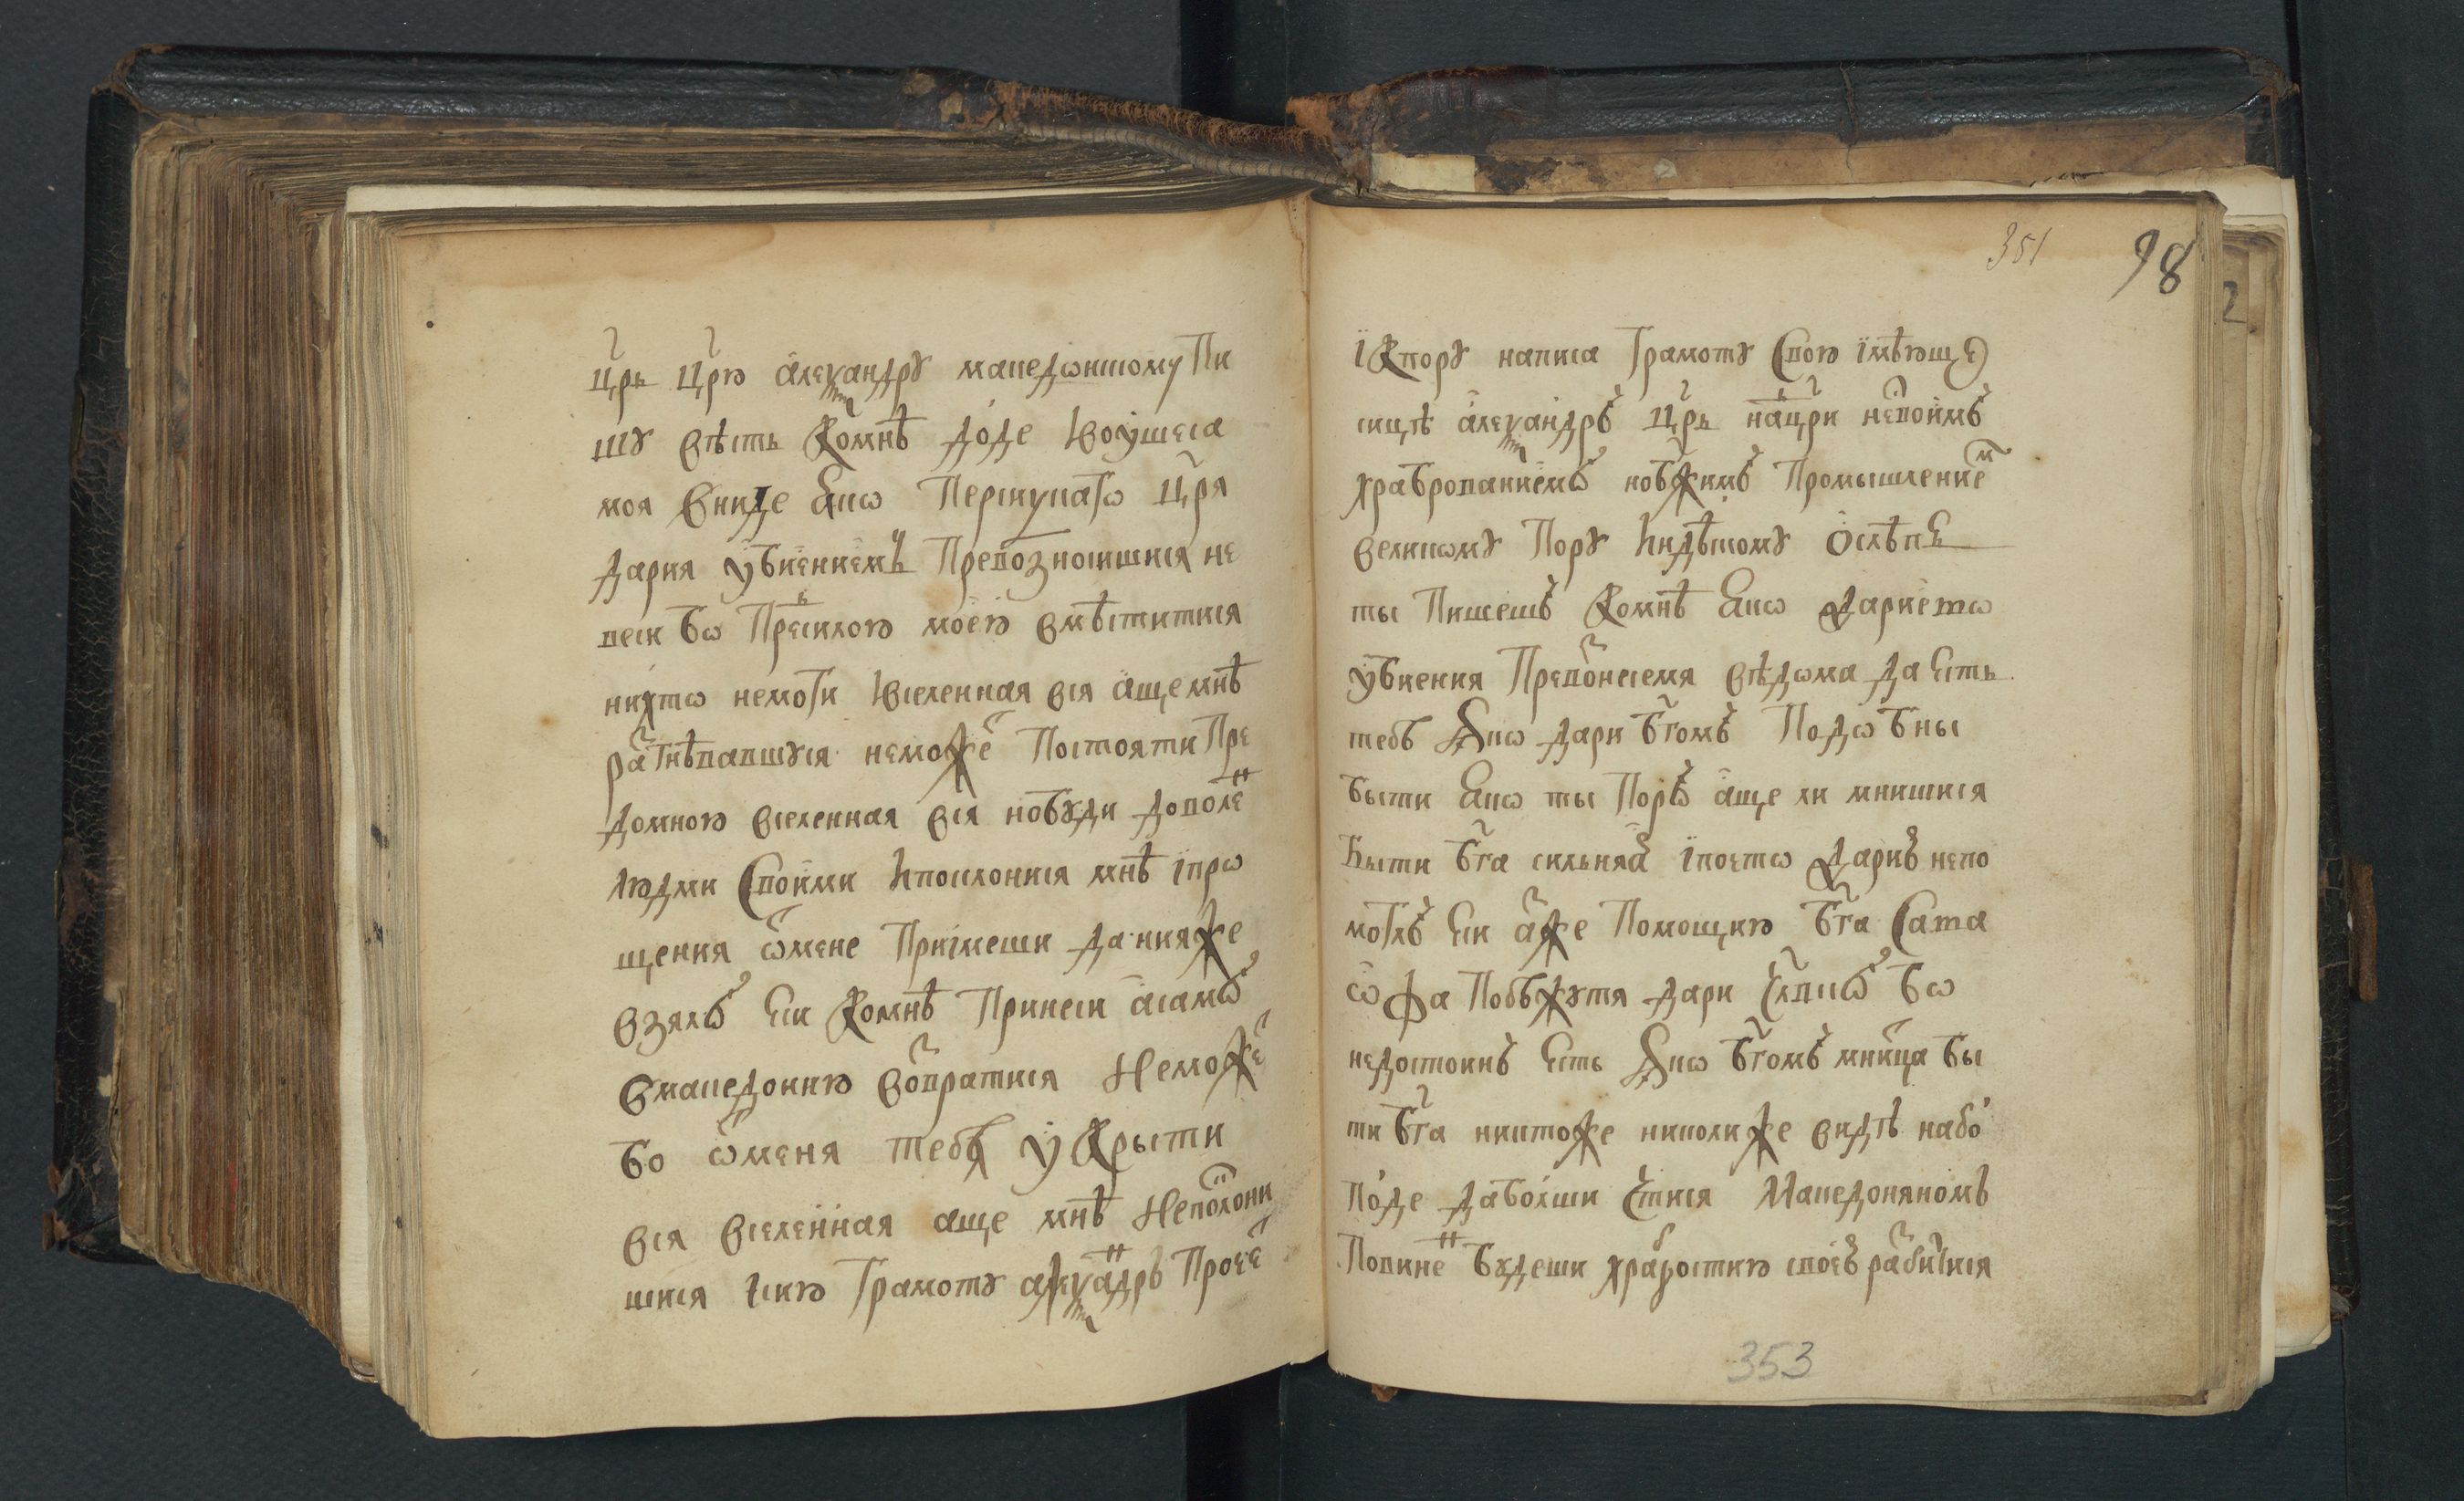 црь црю александру македонскому Пи
шу вѣсть комнѣ доиде Iвоушеса
моя вниде яко Перскукаго Царя
дария убиениемъ Превознослшися не
веси бо Предсилою моею вмѣститися
нихто немоги Iвселенная вся аще мнѣ
разгнѣвавшуся неможе Постояти Пре
домною вселенная вся нобуди доволен
людми своими ипоклонися мнѣ ıпро
щения ѿмене Приімеши данияже
взялъ еси комнѣ Принеси асамъ
вмакедонию возвратися Неможе
бо ѿменя тебя укрыти
вся вселенная аще мнѣ непоклони
шися Iсию Грамоту алеѯандръ Проче
351 98
ıкпору написа Грамоту свою ıмѣюще
сицѣ алеѯандръ црь надцри небоимъ
храброваниемъ нобжимъ Промышление
великому Пору Индѣскому ослѣпе
ты Пишешъ комнѣ яко дариегω
убиения Превонесемя вѣдома да есть
тебѣ яко дари бгомъ Подобны
быти яко ты Поръ аще ли мнишися
быти бга силняа ıпоегω дариѣ непо
моглъ еси аже Помощию бга Сава
ѡфа Побѣжутя дари члвкъ бо
недостоинъ есть яко бгомъ мница бы
ти бга никтоже николиже видѣ набо
Поиде даболши Македоняномъ
Повинен будеши храбростию своеѣ разбиıся
353